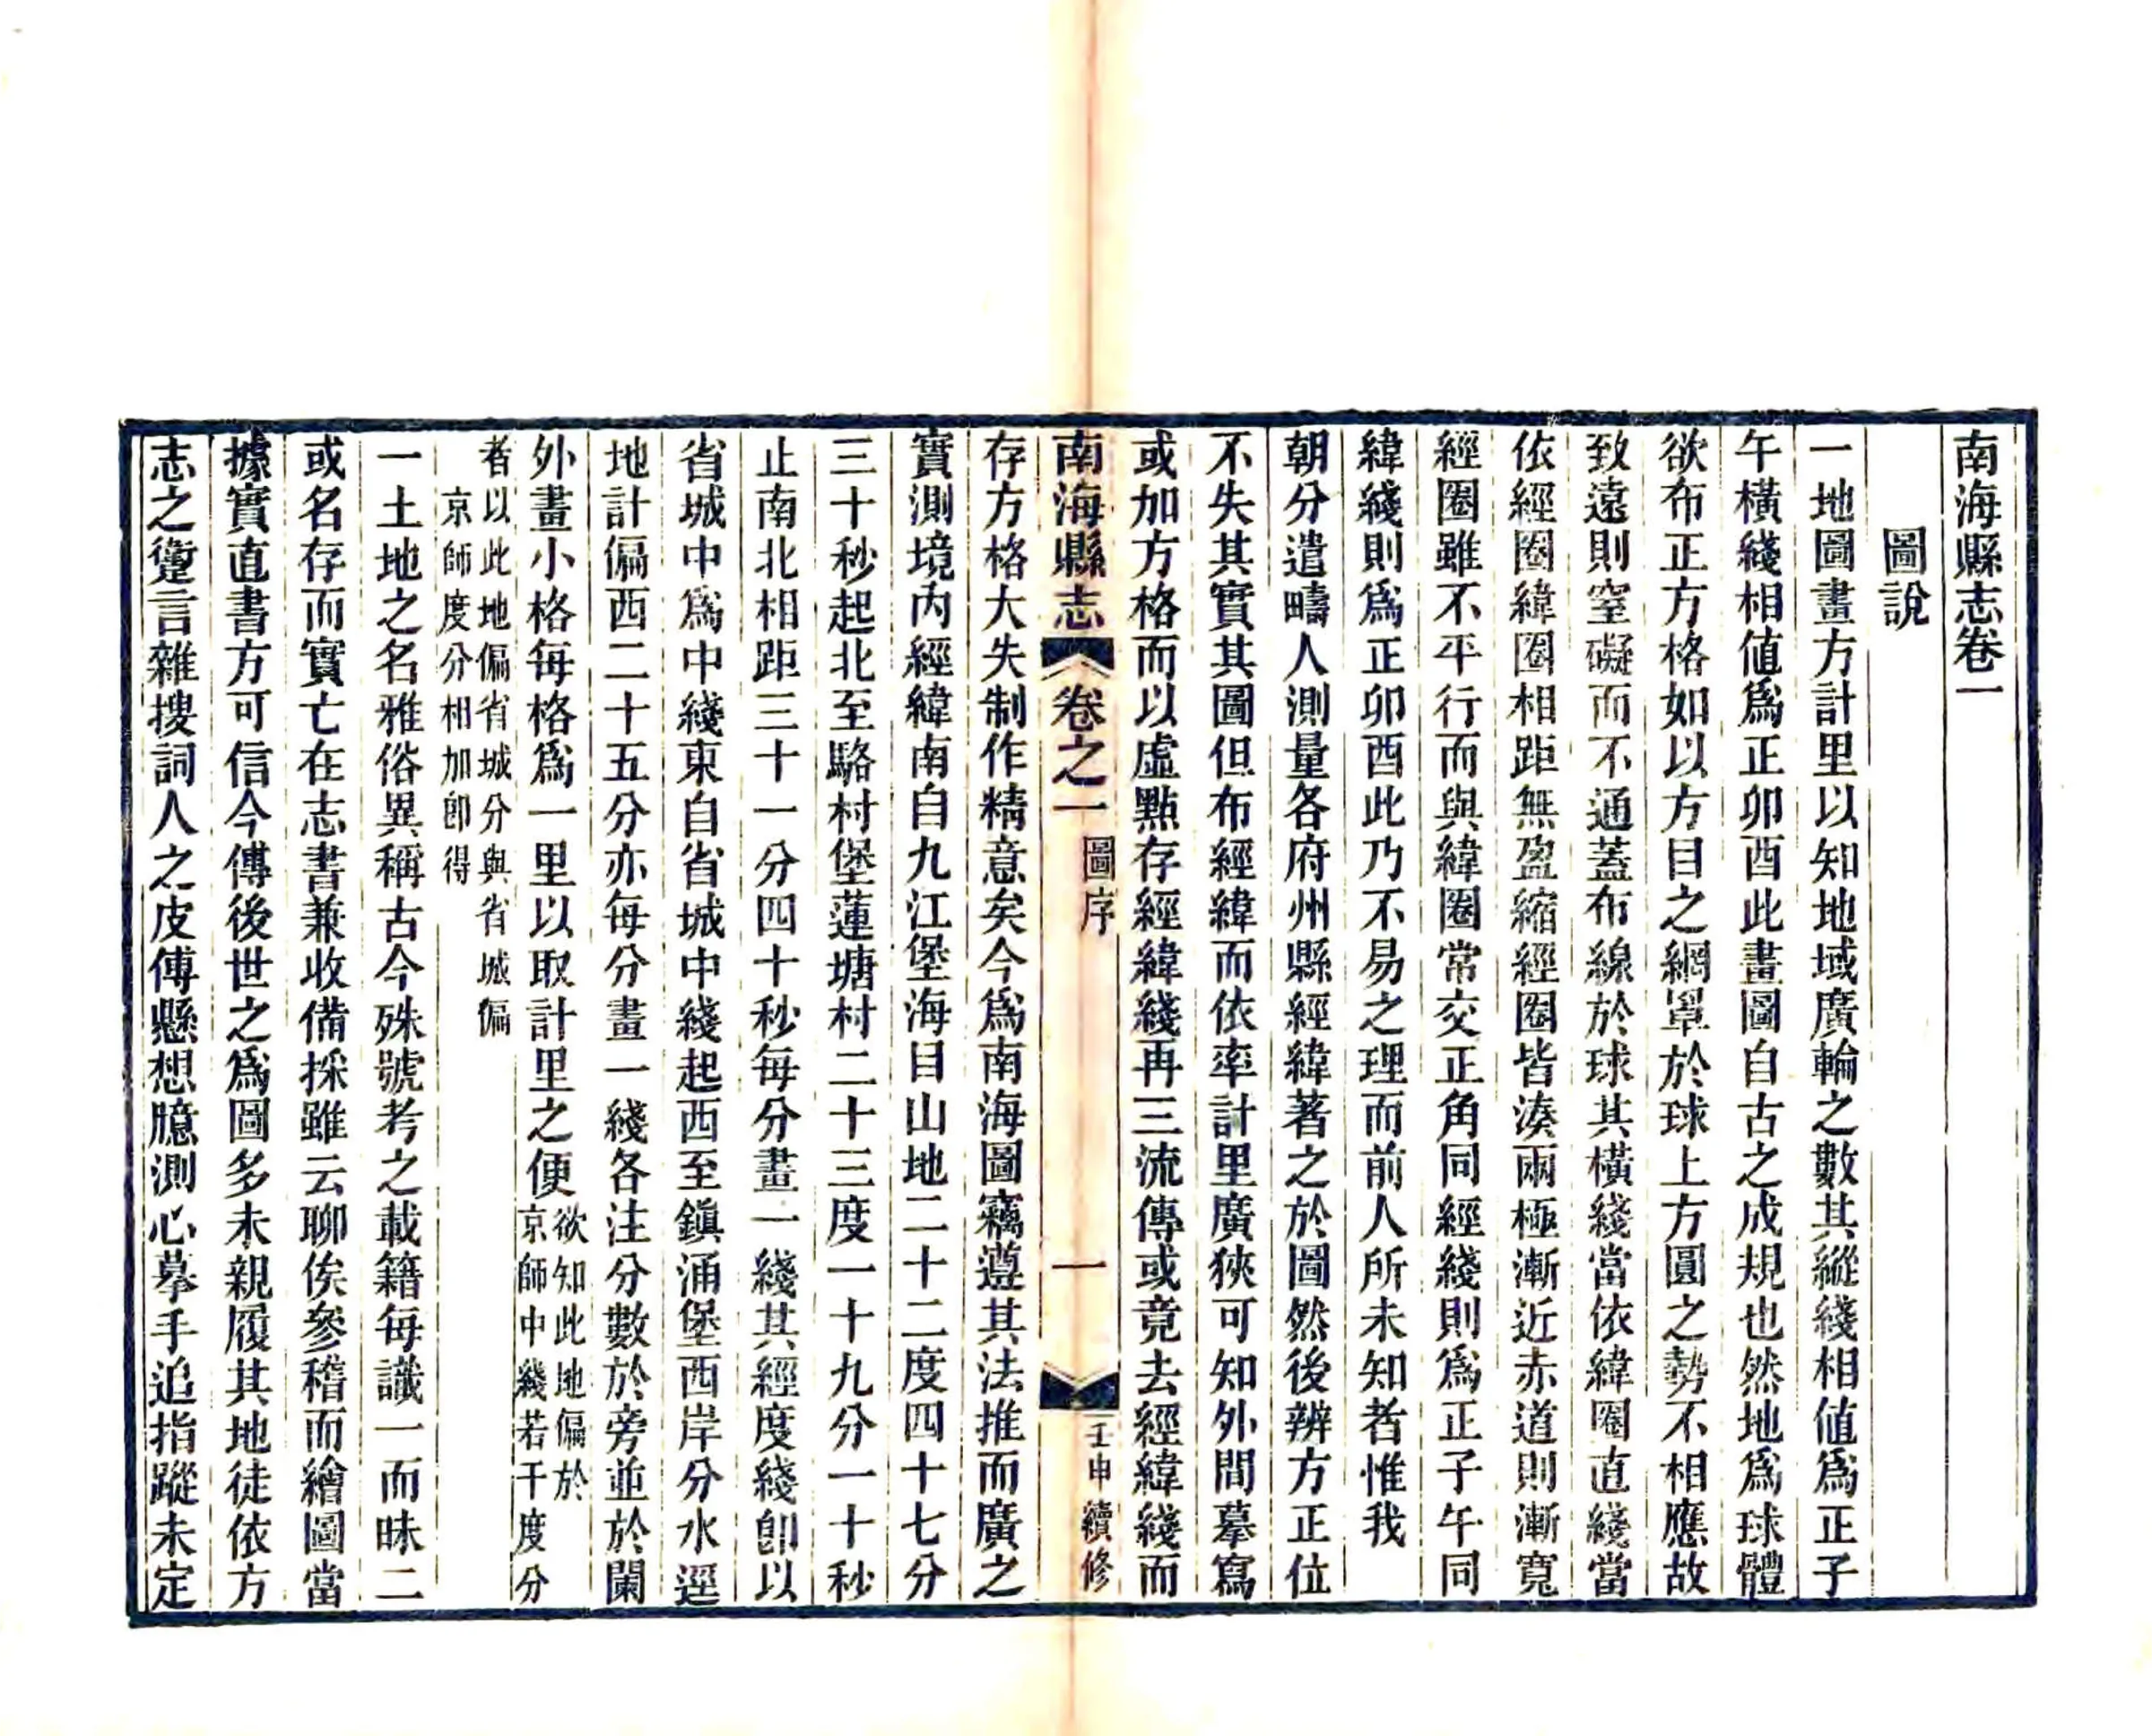 南海縣志卷一
圖說
一地圖畫方計里以知地域廣輪之數其縱綫相値爲正子
午橫綫相値爲正卯酉此畫圖自古之成規也然地爲球體
欲布正方格如以方目之網罩於球上方圓之勢不相應故
致遠則窒礙而不通蓋布線於球其橫綫當依緯圈直綫當
依經圈緯圈相距無盈縮經圈皆湊兩極漸近赤道則漸寬
經圈雖不平行而與緯圈常交正角同經綫則爲正子午同
緯綫則爲正卯酉此乃不易之理而前人所未知者惟我
朝分遣疇人測量各府州縣經緯著之於圖然後辨方正位
不失其實其圖但布經緯而依率計里廣狹可知外間摹寫
或加方格而以虛點存經緯綫再三流傳或竟去經緯綫而
南海縣志
卷之一
圖序
一
壬申續修
存方格大失制作精意矣今爲南海圖竊遵其法推而廣之
實測境內經緯南自九江堡海目山地二十二度四十七分
三十秒起北至駱村堡蓮塘村二十三度一十九分一十秒
止南北相距三十一分四十秒每分畫一綫其經度綫卽以
省城中爲中綫東自省城中綫起西至鎭涌堡西岸分水逕
地計偏西二十五分亦每分畫一綫各注分數於旁並於闌
外畫小格每格爲一里以取計里之便
欲知此地偏於
京師中綫若干度分
者以此地偏省城分與省城偏
京師度分相加卽得
一土地之名雅俗異稱古今殊號考之載籍每識一而昧二
或名存而實亡在志書兼收備採雖云聊俟參稽而繪圖當
據實直書方可信今傳後世之爲圖多未親履其地徒依方
志之躗言雜捜詞人之皮傅懸想臆測心摹手追指蹤未定